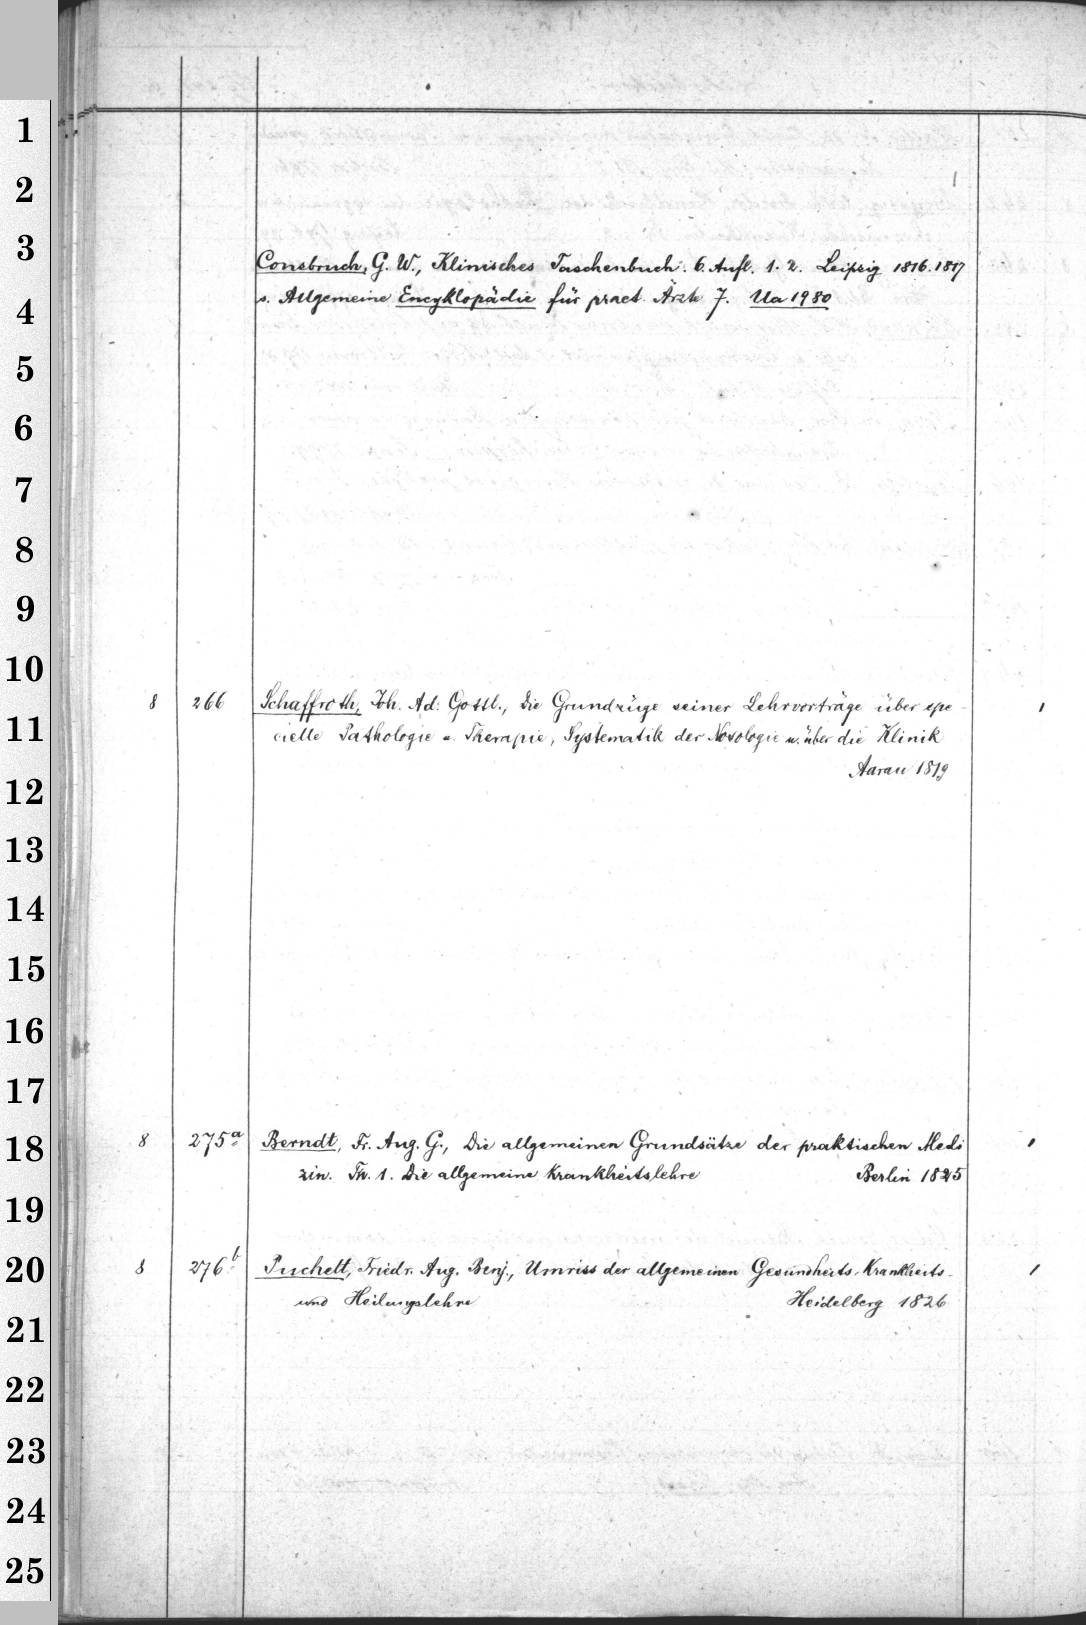 1
2
3
4
5
6
7
8
9
10
11
12
13
14
15
16
17
18
19
20
21
22
23
24
25
Consbruch, G. W., Klinisches Taschenbuch. 6. Aufl. 1. 2. Leipzig 1816. 1817
s. Allgemeine Encyklopädie für pract. Ärzte 7. Ua 1980
8 266 Schaffroth, Joh. Ad. Gottl., Die Grundzüge seiner Lehrvorträge über spe-
cielle Pathologie u. Therapie, Systematik der Nosologie u. über die Klinik
Aarau 1819
8 275a Berndt, Fr. Aug. G., Die allgemeinen Grundsätze der praktischen Medi
zin. Th. 1. Die allgemeine Krankheitslehre Berlin 1825
8 276b Puchelt, Friedr. Aug. Benj., Umriss der allgemeinen Gesundheits- Krankheits-
und Heilungslehre Heidelberg 1826